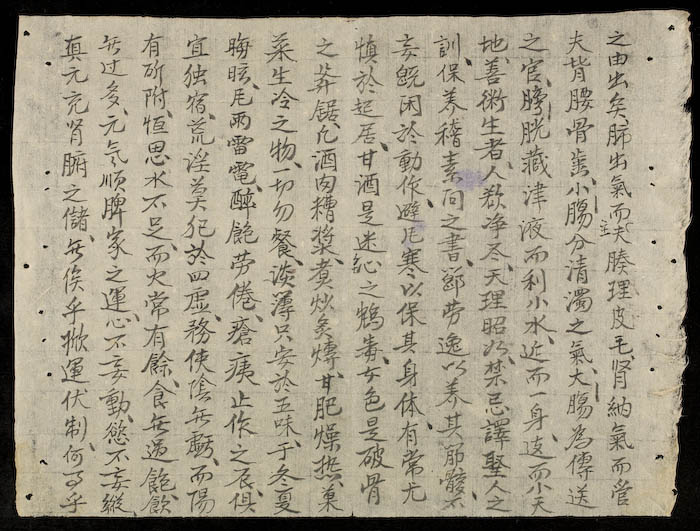 之由出矣肺出氣而主夫腠理皮毛肾納氣而管
夫背腰骨齒小腸分清濁之氣大腸為傳送
之官膀胱藏津液而利小水近而一身遠而小天
地善術生者人欲净尽天理昭然禁忌譯聖人之
訓保养稽素问之書節劳逸以养其筋骸不
妄閑於動作避厄寒以保其身体有常尤
慎於起居甘酒是迷心之鴆毒女色是破骨
之莽鋸凡酒肉糟漿煮炒炙煿甘肥燥热菓
菜生冷之物一切勿餐淡薄只安於五味于冬夏
晦眩凡雨雷電醉飽劳倦瘡痍止作之辰俱
宜独宿荒淫莫犯於四虚務使陰無虧而陽
有所附恒思水不足而火常有餘食無過飽飲
無过多元氣順脾家之運心不妄動慾不妄縱
真元充肾腑之儲無俟乎運伏制何事乎